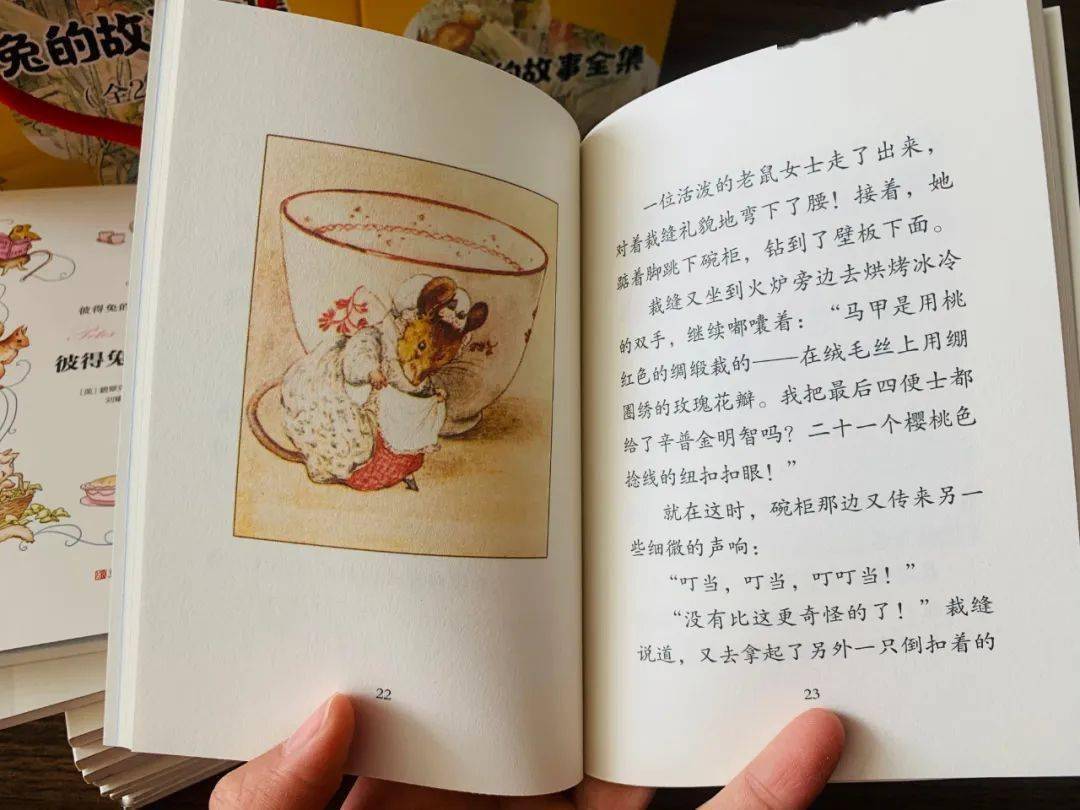 兔的故事
（全2
的故事全集
彼得兔的
Peter
彼得兔
22
一位活泼的老鼠女士走了出来，
对着裁缝礼貌地弯下了腰！接着，她
踮着脚跳下碗柜，钻到了壁板下面。
裁缝又坐到火炉旁边去烘烤冰冷
的双手，继续嘟囔着：“马甲是用桃
红色的绸缎裁的——在绒毛丝上用绷
圈绣的玫瑰花瓣。我把最后四便士都
给了辛普金明智吗？二十一个樱桃色
捻线的纽扣扣眼！”
就在这时，碗柜那边又传来另一
些细微的声响：
“叮当，叮当，叮叮当！”
“没有比这更奇怪的了！”裁缝
说道，又去拿起了另外一只倒扣着的
23